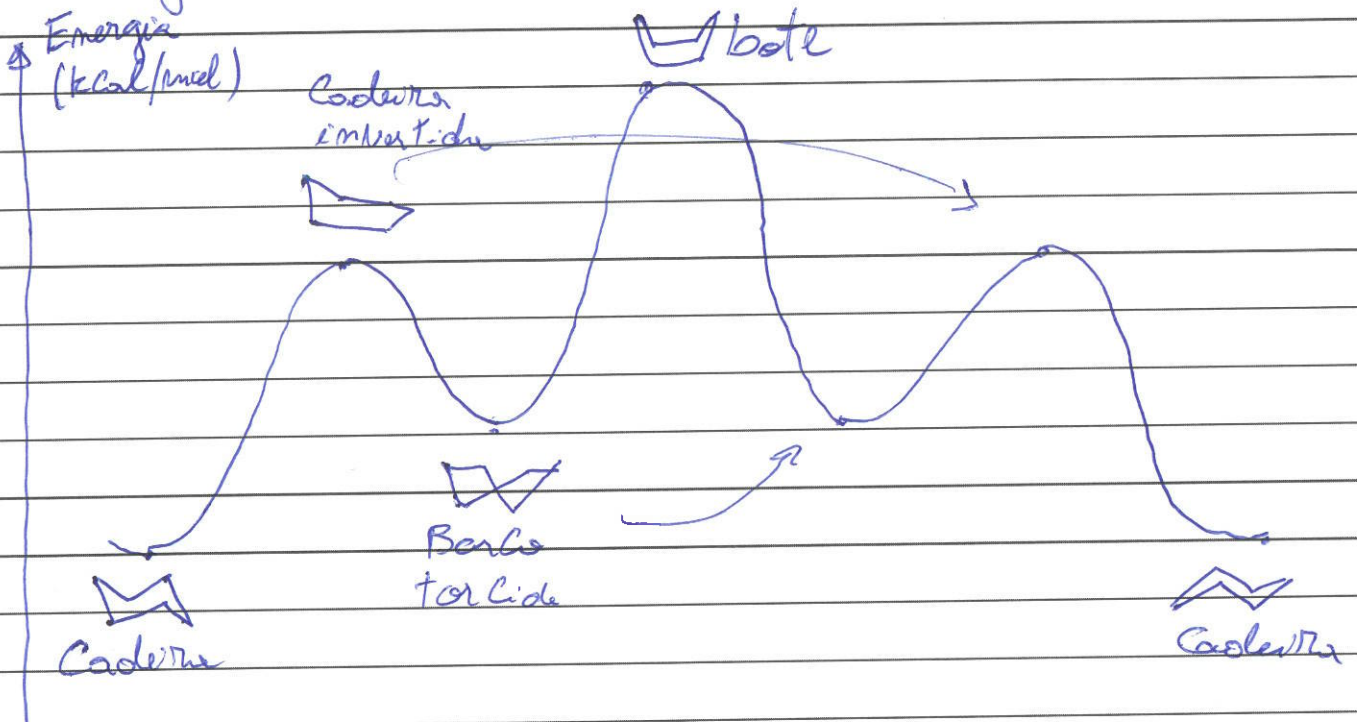 Energia
(kcal/mol)
bote
Cadeira
invertida
Barco
torcido
Cadeira
Cadeira